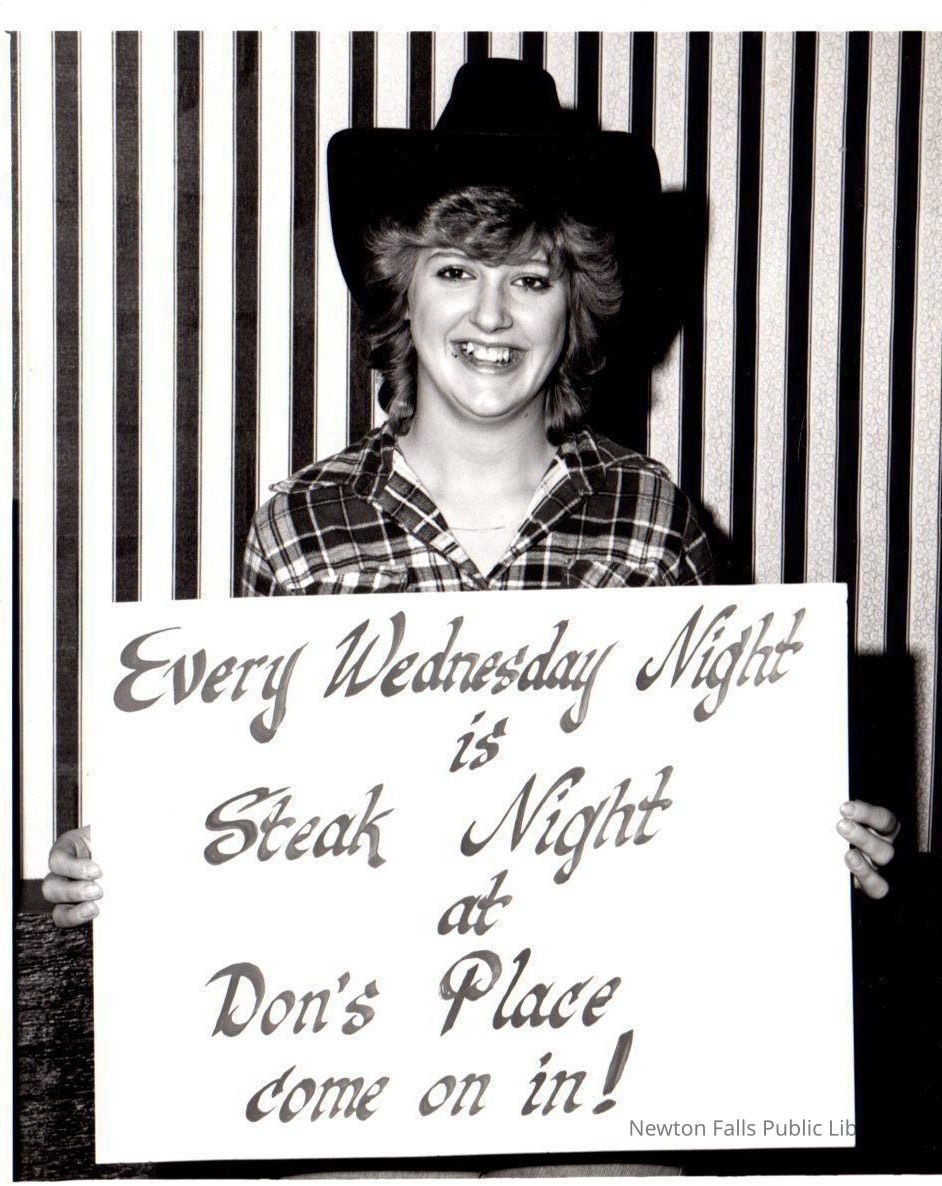 Every Wednesday Night
is
Steak Night
at
Don's Place
come on in!
Newton Falls Public Lib